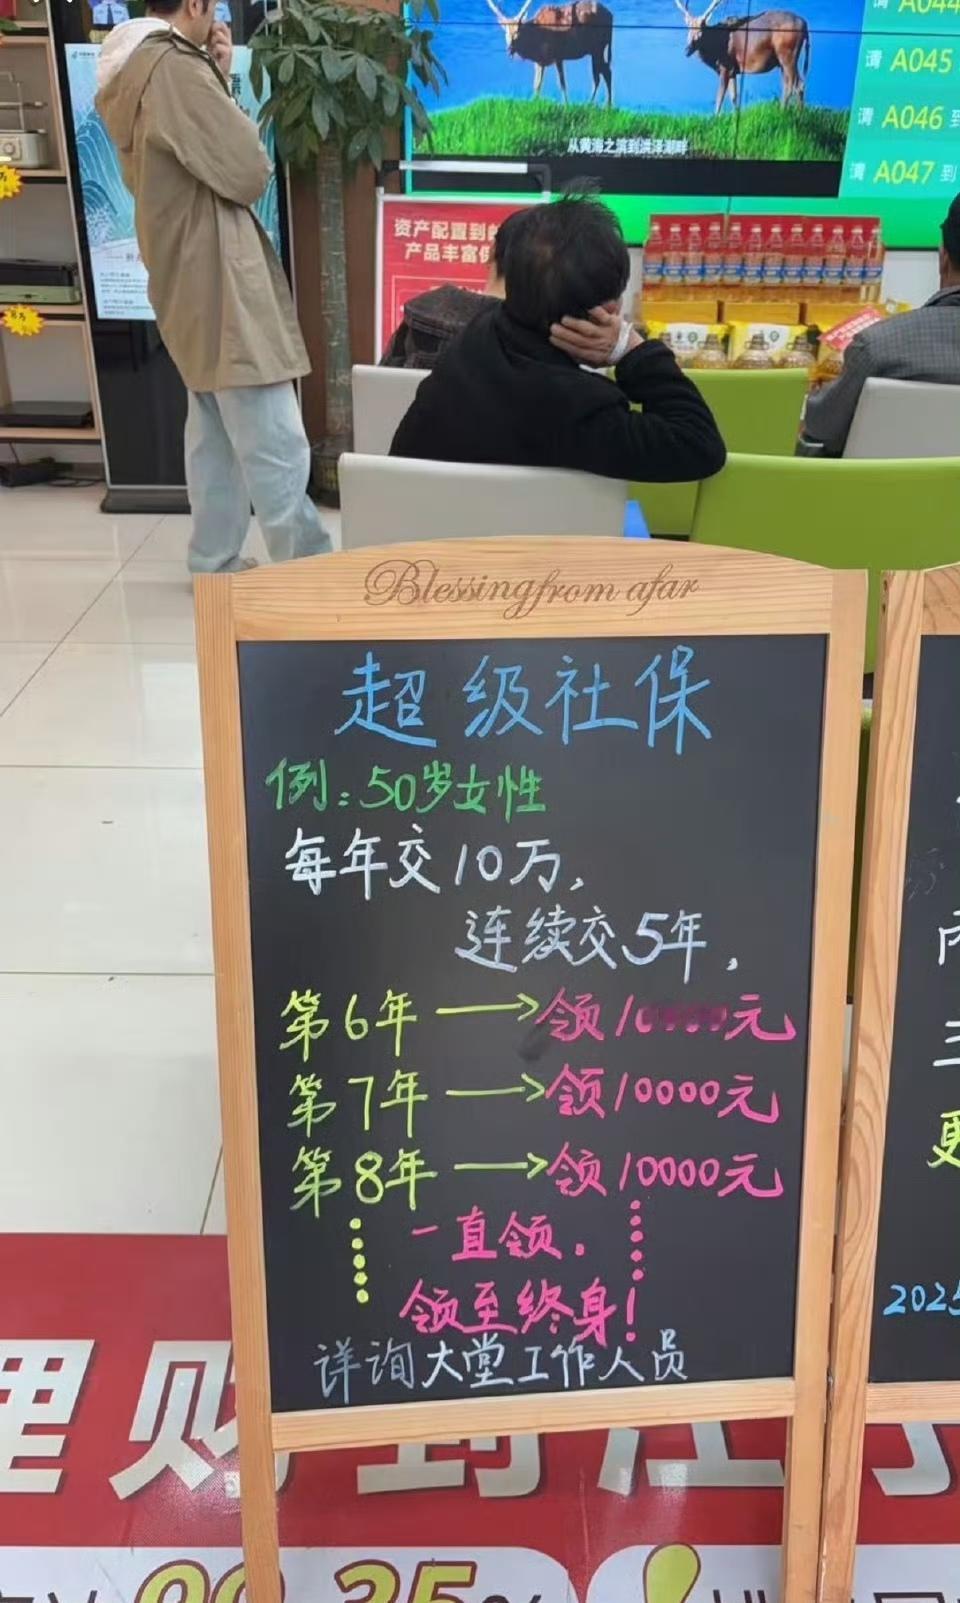 请 A044
请 A045
请 A046 到
请 A047 到
从黄海之滨到洪泽湖畔
资产配置到
产品丰富
Blessing from afar
超级社保
例:50岁女性
每年交10万,
连续交5年,
第6年→领10000元
第7年→领10000元
第8年→领10000元
一直领,
领至终身!
详询大堂工作人员
2025
理财到江